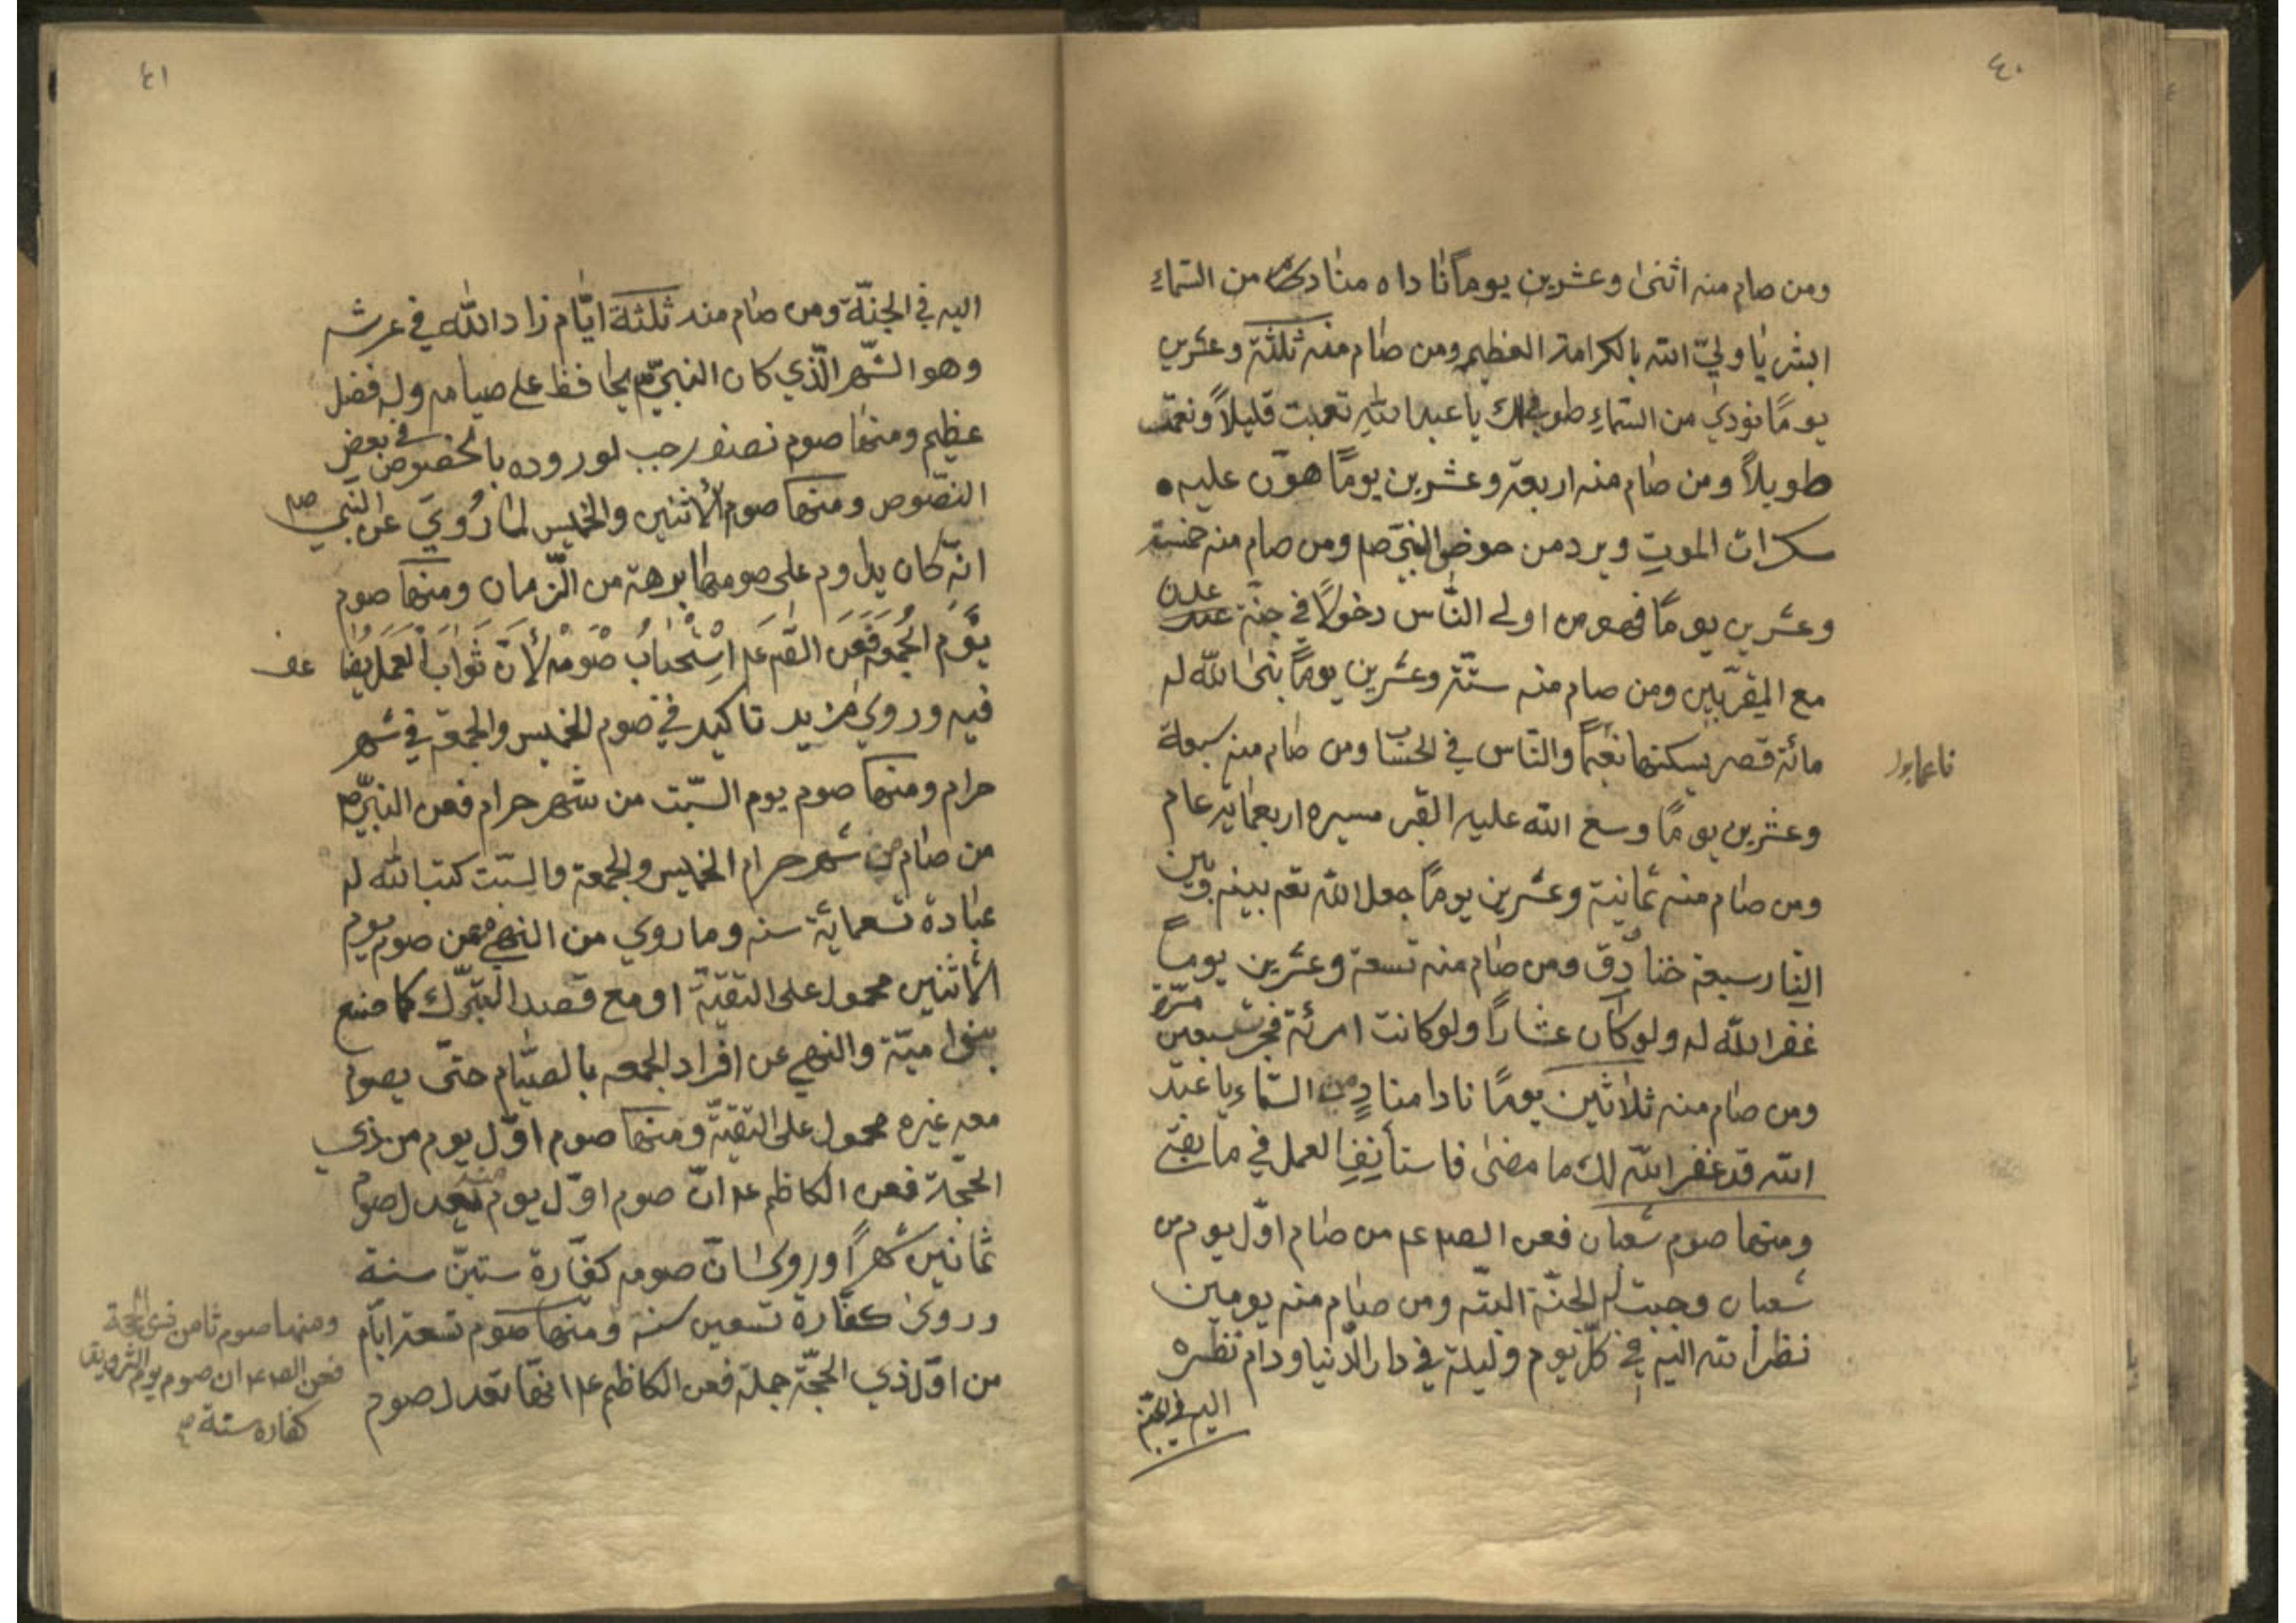 ٤٠
ومن صام منه اثنى وعشرين يوماً نا داه منادٍ من السّماء
ابشر يا وليّ الله بالكرامة العظيم ومن صام منه ثلثة وعشرين
يومًا نودي من السّماءِ طوبى لك يا عبد الله تعبت قليلاً ونعمت
طويلاً ومن صام منه اربعة وعشرين يومًا هوّن عليه
سكرات الموتِ ويرد من حوض النبيّ ص ومن صام منه خمسة
وعشرين يومًا فهو من اولى النّاس دخولًا في جنّة عدن
مع المقرّبين ومن صام منه ستّة وعشرين يومًا بنى الله له
مائة قصر يسكنها نعيمًا والنّاس في الحساب ومن صام منه سبعة
وعشرين يومًا وسع الله عليه القبر مسيره اربعمايه عام
ومن صام منه ثمانية وعشرين يومًا جعل الله تعم بينه وبين
النّار سبعة خنادق ومن صام منه تسعة وعشرين يومًا
غفر الله له ولو كان عشارًا ولو كانت امرئة فجرت سبعين مرّة
ومن صام منه ثلاثين يومًا نادا منادٍ من السّماء يا عبد
الله قد غفر الله لك ما مضى فاستأنِفِ العمل في ما بقى
ومنها صوم شعبان فعن الصم عم من صام اوّل يوم من
شعبان وجبت له الجنّة البتّه ومن صام منه يومين
نظر الله اليه في كلّ يوم وليلة في دار الدّنيا ودام نظره
اليه في الجنّة
٤١
اليه في الجنّة ومن صام منه ثلثة ايّام زاد الله في عرشه
وهو الشّهر الّذي كان النبيّ ص يحافظ على صيامه وله فضل
عظيم ومنها صوم نصف رجب لوروده بالخصوص في بعض
النصّوص ومنها صوم الأثنين والخميس لما رُويَ عن النبي ص
انّه كان يداوم على صومهما برهة من الزّمان ومنها صوم
يَوْم الجُمعة فعن الصم عم اسْتحبابُ صَومه لأنّ ثوابَ العمل يضا عف
فيه وروي مزيد تاكيد في صوم الخميس والجمعة في شهر
حرام ومنها صوم يوم السّبت من شهر حرام فعن النبيّ ص
من صام من شهر حرام الخميس والجمعة والسّبت كتب الله له
عبادة تسعمائة سنه وما روي من النهي عن صوم يوم
الأثنين محمول على التقيّة او مع قصد التبرّك كما صنع
بنوا ميّة والنهي عن افراد الجمعه بالصيّام حتّى يصوم
معه غيره محمول على التقيّة ومنها صوم اوّل يوم من ذي
الحجّة فعن الكاظم عم انّ صوم اوّل يوم منه يعدل صوم
ثمانين شهرًا وروى انّ صومه كفّارة ستيّن سنة
وروى كفّارة تسعين سنة ومنها صوم تسعة ايّام
من اوّل ذي الحجّة جملة فعن الكاظم عم انّها تعدل صوم
ومنها صوم ثامن ذي الحجة
فعن الصم عم ان صوم يوم التروية
كفاره سنة